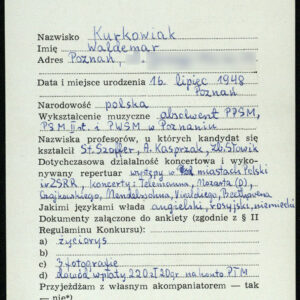 Nazwisko Kurkowiak
Imię Waldemar
Adres Poznań,
Data i miejsce urodzenia 16 lipiec 1948
Poznań
Narodowość polska
Wykształcenie muzyczne absolwent PPSM,
PSM II st. i PWSM w Poznaniu
Nazwiska profesorów, u których kandydat się
kształcił St. Szopfer, A. Kasprzak, Zb. Słowik
Dotychczasowa działalność koncertowa i wyko-
nywany repertuar występy w miastach Polski
i ZSRR, koncerty: Telemanna, Mozarta (D),
Czajkowskiego, Mendelssohna, Vivaldiego, Beethovena
Jakimi językami włada angielski, rosyjski, niemiecki
Dokumenty załączone do ankiety (zgodnie z § II
Regulaminu Konkursu):
a) życiorys
b)
c) 3 fotografie
d) dowód wpłaty 220 zł 20 gr na konto PTM
Przyjeżdżam z własnym akompaniatorem — tak
— nie*)